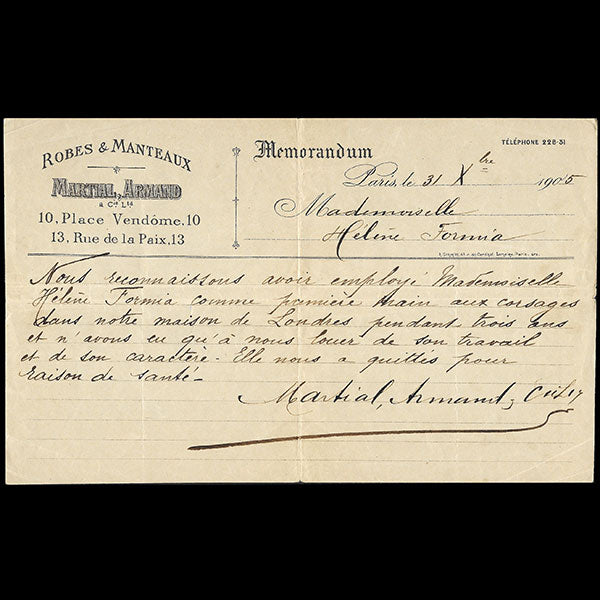 ROBES & MANTEAUX
MARTIAL, ARMAND
& Cº Ltd
10, Place Vendôme, 10
13, Rue de la Paix, 13
Memorandum
TÉLÉPHONE 228-31
Paris le 31 Xbre 1905
Mademoiselle
Hélène Formia
Nous reconnaissons avoir employé Mademoiselle
Hélène Formia comme première main aux corsages
dans notre maison de Londres pendant trois ans
et n'avons eu qu'à nous louer de son travail
et de son caractère. Elle nous a quittés pour
raison de santé_
Martial, Armand, Cie Ltd